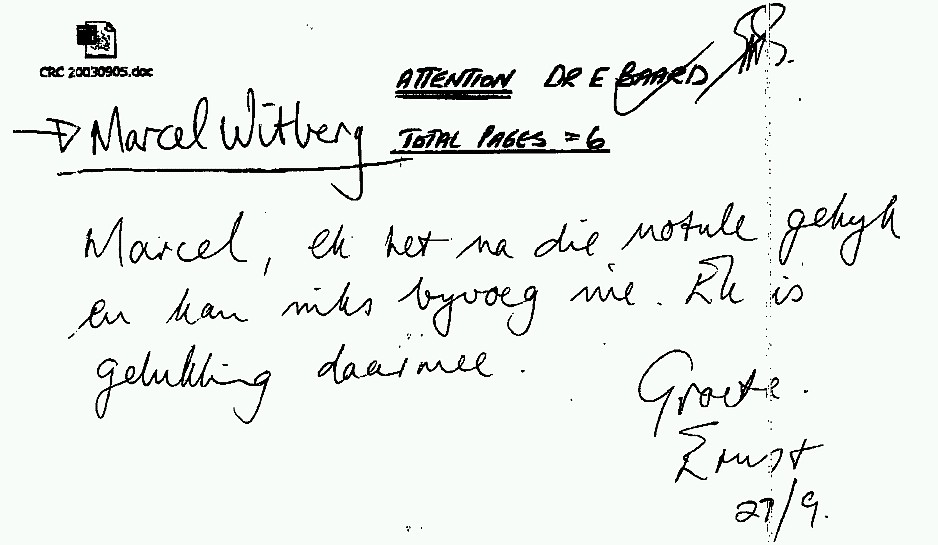 CRC 20030905.doc
ATTENTION DR E BAARD
→ Marcel Witberg
TOTAL PAGES = 6
Marcel, ek het na die notule gekyk
en kan niks byvoeg nie. Ek is
gelukking daarmee.
Groete.
Ernst
27/9.